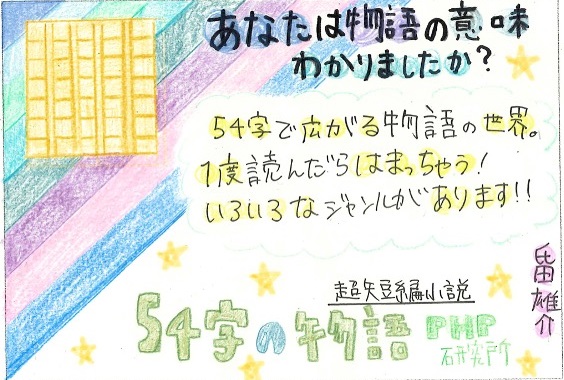 あなたは物語の意味
わかりましたか？
54字で広がる物語の世界。
1度読んだらはまっちゃう!
いろいろなジャンルがあります!!
氏田雄介
超短編小説
54字の物語 PHP
研究所